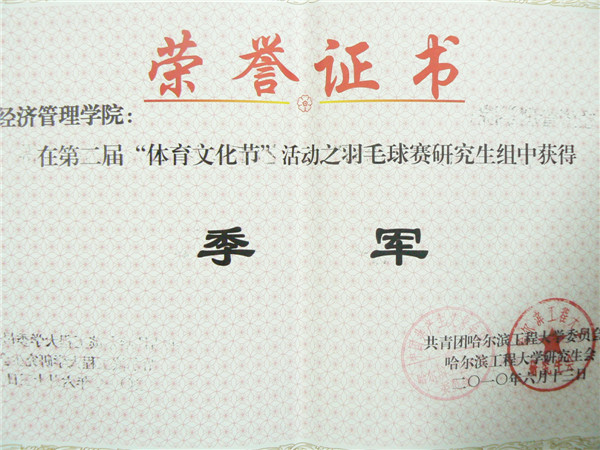 荣誉证书
经济管理学院：
在第二届“体育文化节”活动之羽毛球赛研究生组中获得
季军
共青团哈尔滨工程大学委员会
哈尔滨工程大学研究生会
二〇一〇年六月十三日